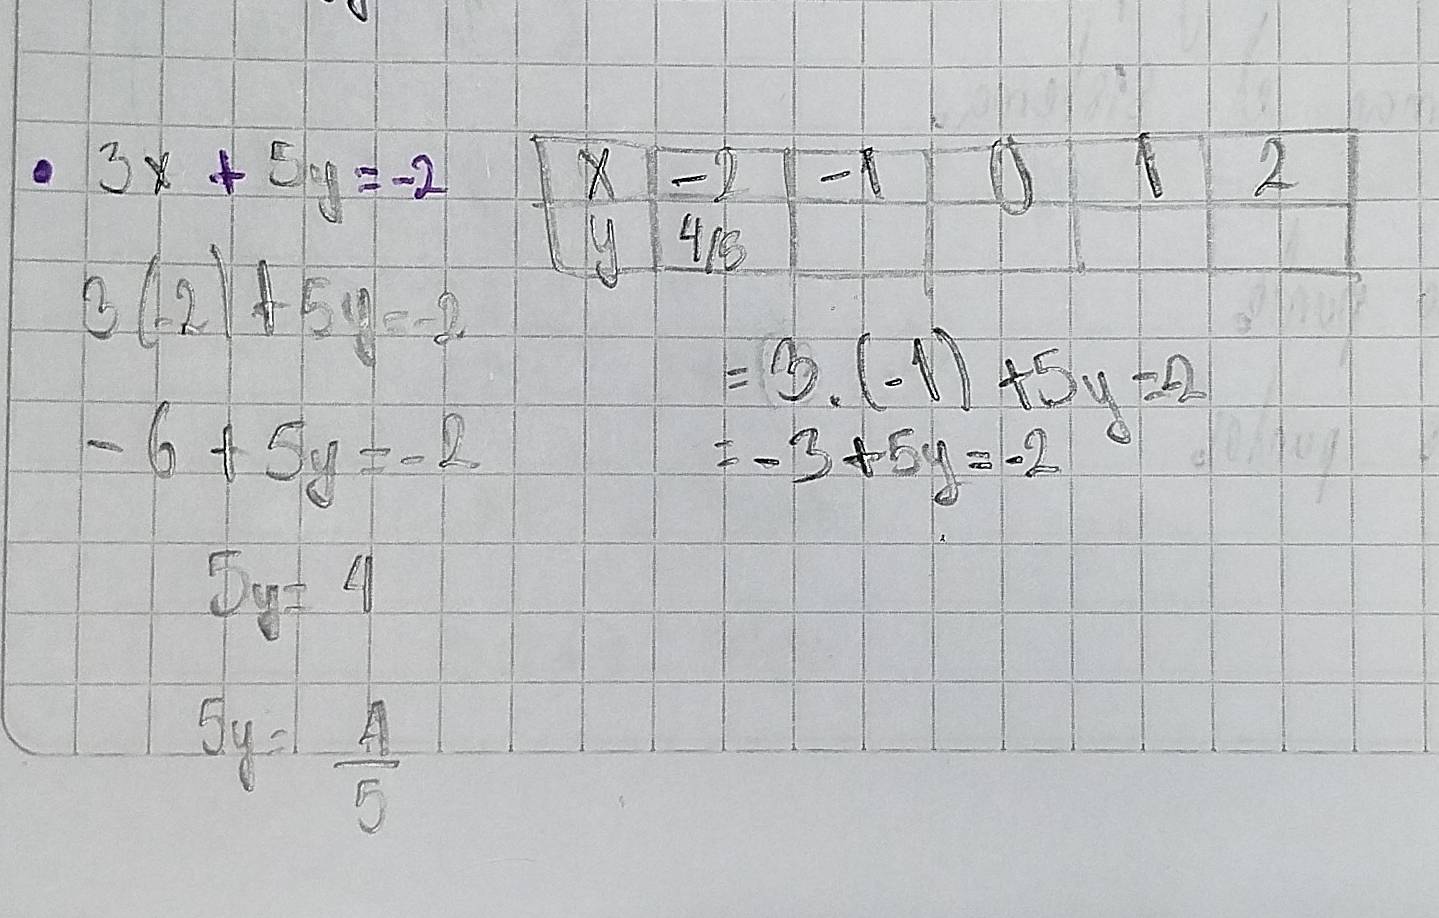 • 3x + 5y = -2
x -2 -1 0 1 2
y 4/5
3(-2) + 5y = -2
-6 + 5y = -2
5y = 4
5y = 4/5
= 3.(-1) +5y = -2
= -3 + 5y = -2